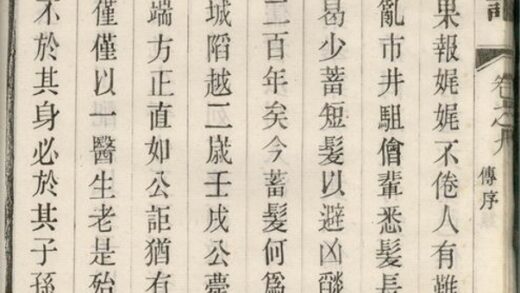 卷之九 傳序
果報娓娓不倦人有難
亂市井駔儈輩悉髮長
曷少蓄短髮以避凶燄
二百年矣今蓄髮何爲
城陷越二歲壬戌公薨
端方正直如公詎猶有
僅僅以一醫生老是殆
不於其身必於其子孫